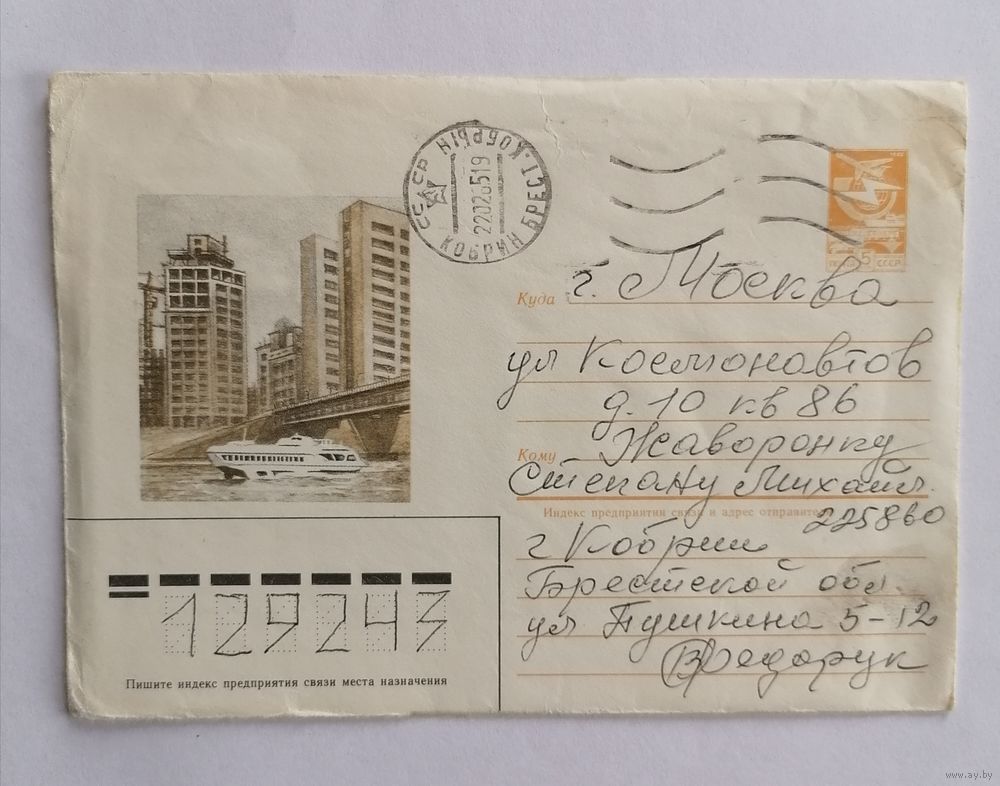 СССР КОБРЫН
22028519
КОБРИН БРЕСТ.
5 СССР
Куда г. Москва
ул Космонавтов
д. 10 кв 86
Кому Жаворонку
Степану Михайл.
Индекс предприятия связи и адрес отправителя
225860
г Кобрин
Брестской обл.
ул Пушкина 5-12
Федорук
129243
Пишите индекс предприятия связи места назначения
www.ay.by